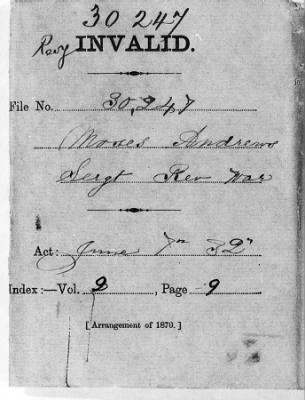 30 247
Rev INVALID.
File No. 30,247
Moses Andrews
Sergt Rev War
Act: June 7th 32
Index:—Vol. 2, Page 9
[Arrangement of 1870.]